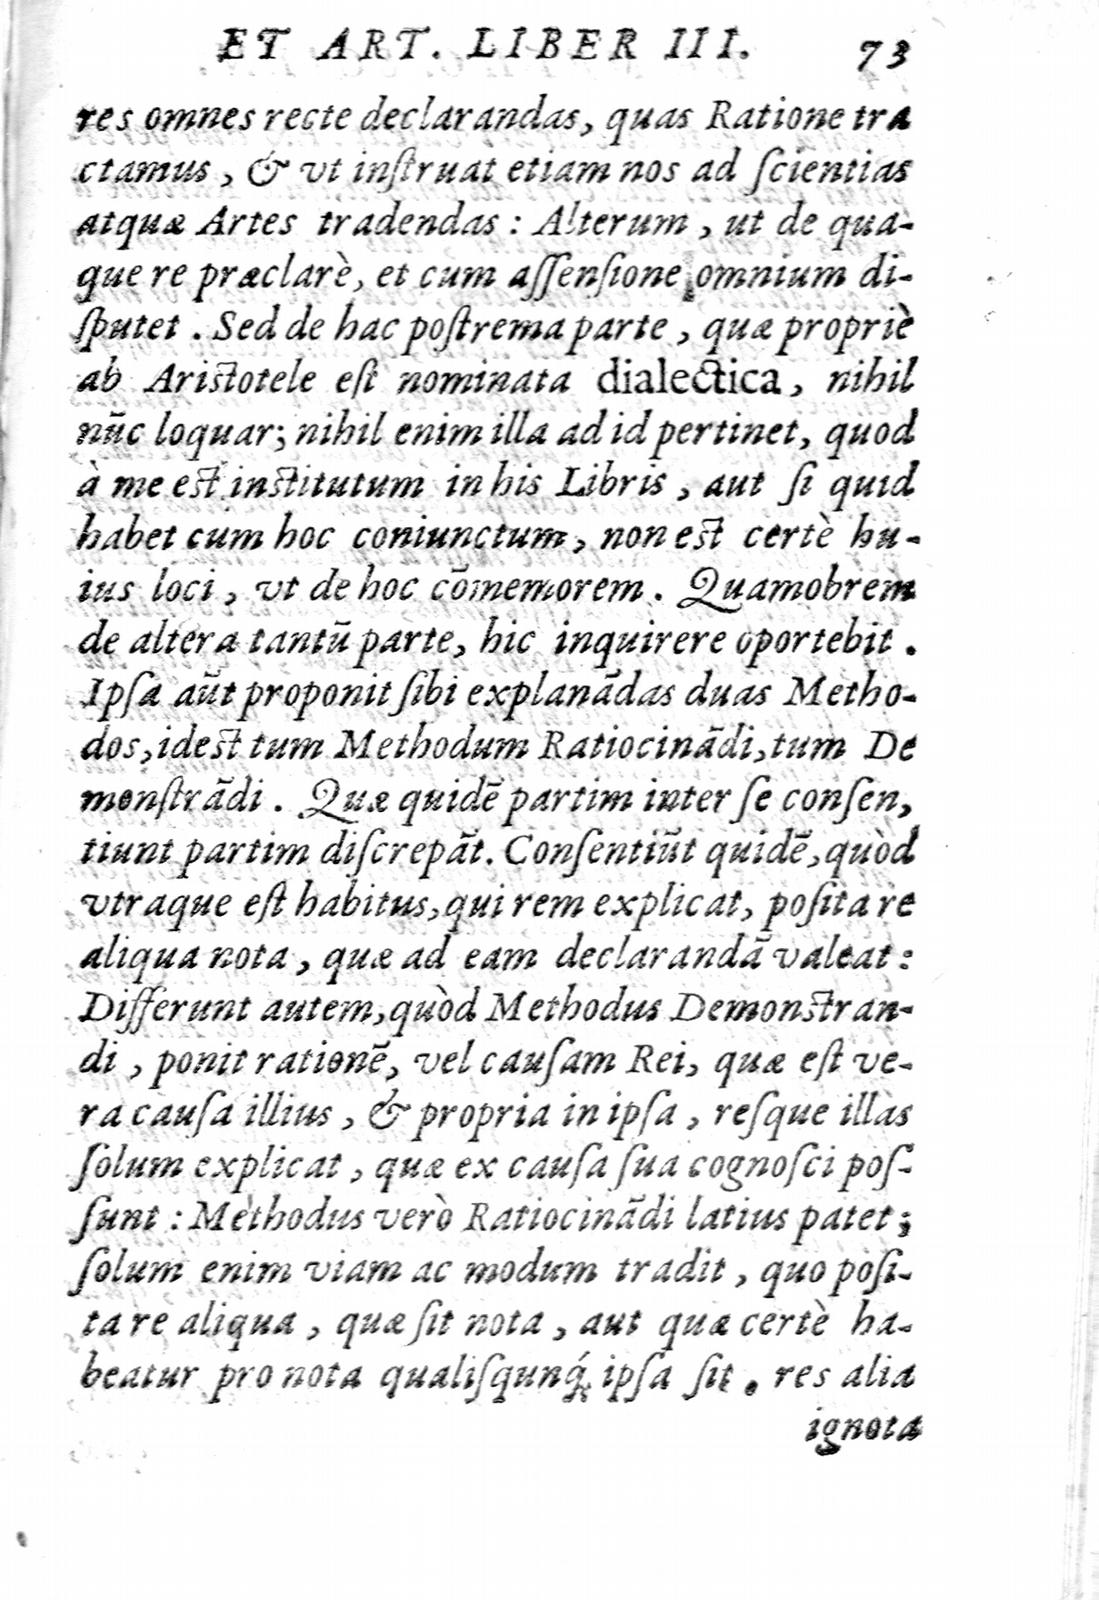 ET ART. LIBER III. 73
res omnes recte declarandas, quas Ratione tra
ctamus, & vt inſtruat etiam nos ad ſcientias
atquæ Artes tradendas: Alterum, ut de qua-
que re præclarè, et cum aſſenſione omnium di-
ſputet. Sed de hac poſtrema parte, quæ propriè
ab Ariſtotele eſt nominata dialectica, nihil
nũc loquar; nihil enim illa ad id pertinet, quod
à me eſt inſtitutum in his Libris, aut ſi quid
habet cum hoc coniunctum, non eſt certè hu-
ius loci, vt de hoc cõmemorem. Quamobrem
de altera tantũ parte, hic inquirere oportebit.
Ipſa aũt proponit ſibi explanãdas duas Metho-
dos, ideſt tum Methodum Ratiocinãdi, tum De
monſtrãdi. Quæ quidẽ partim inter ſe conſen,
tiunt partim diſcrepãt. Conſentiũt quidẽ, quòd
vtraque eſt habitus, qui rem explicat, poſita re
aliqua nota, quæ ad eam declarandã valeat:
Differunt autem, quòd Methodus Demonſtran-
di, ponit rationẽ, vel cauſam Rei, quæ eſt ve-
ra cauſa illius, & propria in ipſa, reſque illas
ſolum explicat, quæ ex cauſa ſua cognoſci poſ-
ſunt: Methodus verò Ratiocinãdi latius patet;
ſolum enim viam ac modum tradit, quo poſi-
ta re aliqua, quæ ſit nota, aut quæ certè ha-
beatur pro nota qualiſqunq́; ipſa ſit. res alia
ignota